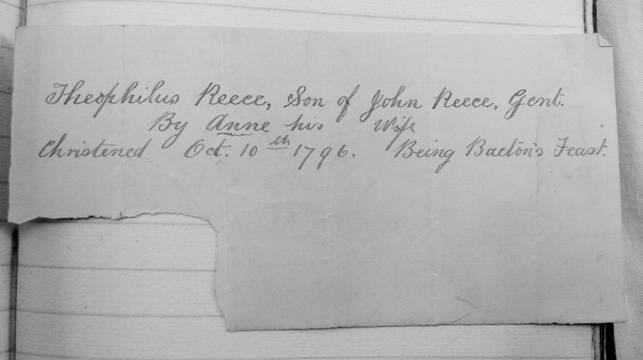 Theophilus Reece, Son of John Reece, Gent.
By Anne his Wife
Christened Oct. 10th 1796. Being Bacton's Feast.